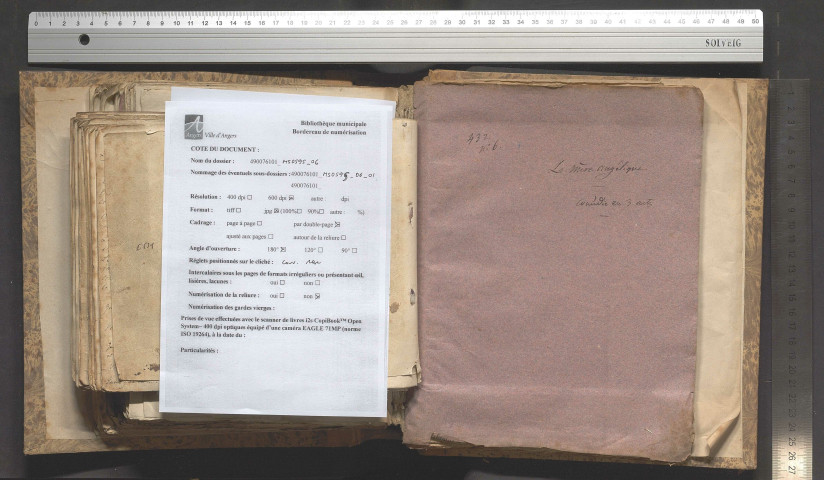 0 1 2 3 4 5 6 7 8 9 10 11 12 13 14 15 16 17 18 19 20 21 22 23 24 25 26 27 28 29 30 31 32 33 34 35 36 37 38 39 40 41 42 43 44 45 46 47 48 49 50
SOLVEIG
A
Angers Ville d'Angers
Bibliothèque municipale
Bordereau de numérisation
COTE DU DOCUMENT :
Nom du dossier : 490076101_MS0595_06
Nommage des éventuels sous-dossiers :490076101_MS0595_06_01
490076101_
Résolution : 400 dpi ☐ 600 dpi ☒ autre : dpi
Format : tiff ☐ jpg ☒ (100%☐ 90%☐ autre : %)
Cadrage : page à page ☐ par double-page ☒
ajusté aux pages ☐ autour de la reliure ☐
Angle d'ouverture : 180° ☒ 120° ☐ 90° ☐
Réglets positionnés sur le cliché :
Intercalaires sous les pages de formats irréguliers ou présentant
lisières, lacunes : oui ☐ non ☐
Numérisation de la reliure : oui ☐ non ☒
Numérisation des gardes vierges :
Prises de vue effectuées avec le scanner de livres i2s CopiBook™ Open
System– 400 dpi optiques équipé d'une caméra EAGLE 71MP (norme
ISO 19264), à la date du :
Particularités :
432
n° 6.
Comédie en 3 acts